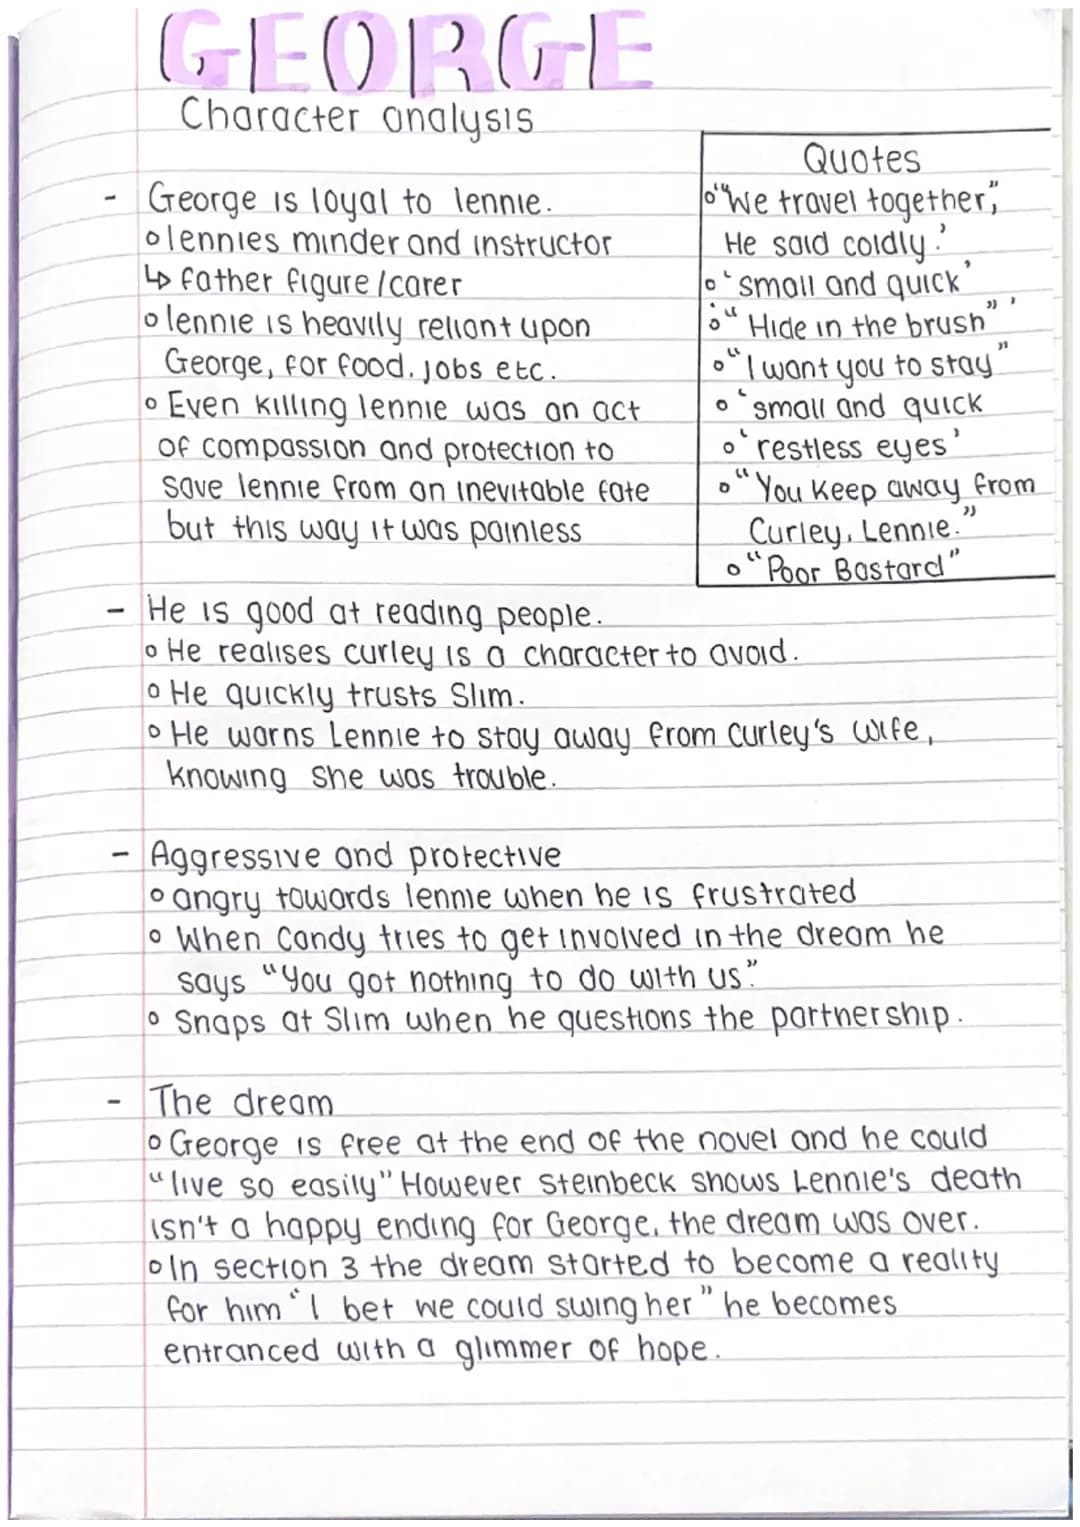 GEORGE
Character analysis
- George is loyal to lennie.
o lennies minder and instructor
↳ father figure/carer
o lennie is heavily reliant upon
George, for food, jobs etc.
o Even killing lennie was an act
of compassion and protection to
save lennie from an inevitable fate
but this way it was painless
Quotes
o '"We travel together,"
He said coldly.'
o 'small and quick'
o '"Hide in the brush"'
o "I want you to stay"
o 'small and quick
o 'restless eyes'
o "You keep away from
Curley, Lennie."
o "Poor Bastard"
- He is good at reading people.
o He realises curley is a character to avoid.
o He quickly trusts Slim.
o He warns Lennie to stay away from curley's wife,
knowing she was trouble.
- Aggressive and protective
o angry towards lennie when he is frustrated
o When Candy tries to get involved in the dream he
says "You got nothing to do with us".
o Snaps at Slim when he questions the partnership.
- The dream
o George is free at the end of the novel and he could
"live so easily" However Steinbeck shows Lennie's death
isn't a happy ending for George, the dream was over.
o In section 3 the dream started to become a reality
for him "I bet we could swing her" he becomes
entranced with a glimmer of hope.